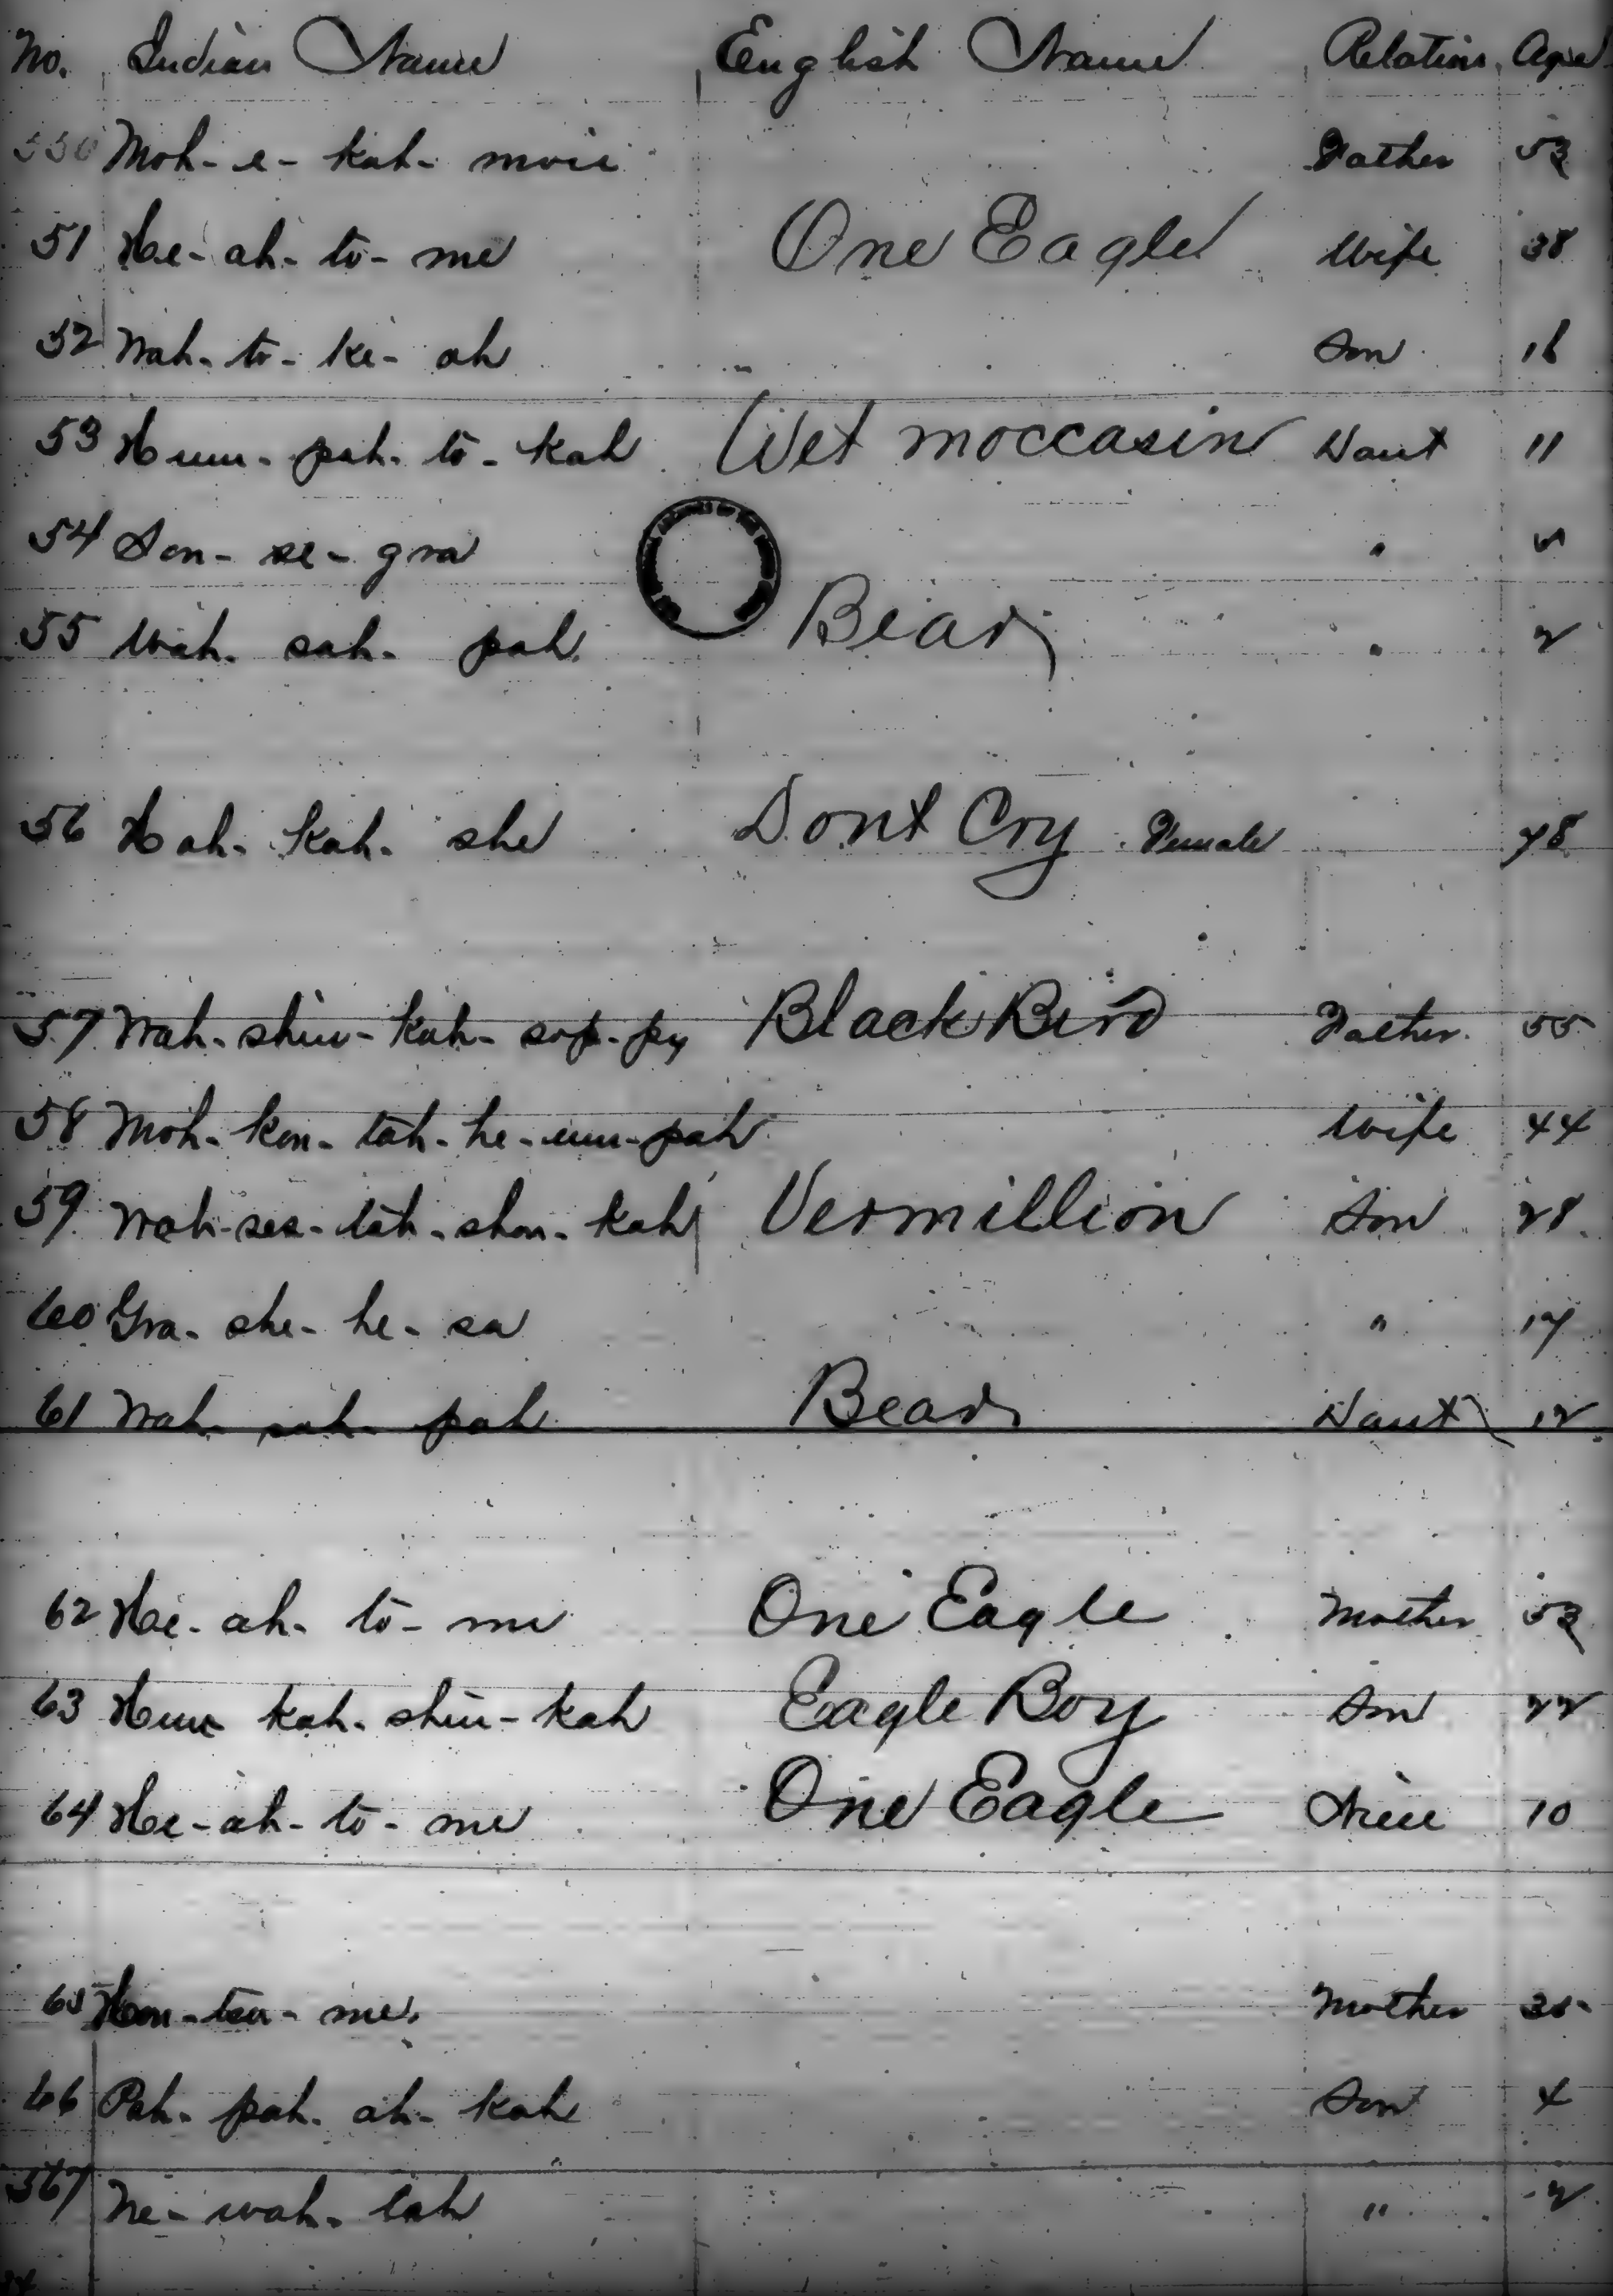 No. Indian Name English Name Relation Age
550 Moh-e-kah-moie Father 53
51 He-ah-to-me One Eagle Wife 38
52 Wah-to-ke-ah Son 16
53 Hum-pah-to-kah Wet moccasin Daut 11
54 Son-se-gra " 5
55 Wah-sah-pah Bear " 2
56 Hah-kah-she Dont Cry Female 78
57 Wah-shin-kah-sop-py Black Bird Father 55
58 Moh-kon-tah-he-um-pah Wife 44
59 Wah-ses-tah-shon-kah Vermillion Son 28
60 Gra-she-he-sa " 17
61 Wah-sah-pah Bear Daut 12
62 He-ah-to-me One Eagle Mother 53
63 Hun kah-shin-kah Eagle Boy Son 22
64 He-ah-to-me One Eagle Niece 10
65 me Mother
66 Pah-pah-ah-kah Son 4
567 Ne-wah-tah " 2